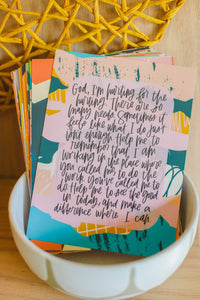 God, I'm hurting for the
hurting. There are so
many needs. Sometimes it
feels like what I do just
isn't enough. Help me to
remember that I am
working in the place where
you called me to do the
work you've called me to
do. Help me to see the good
in today, and make a
difference where I can.